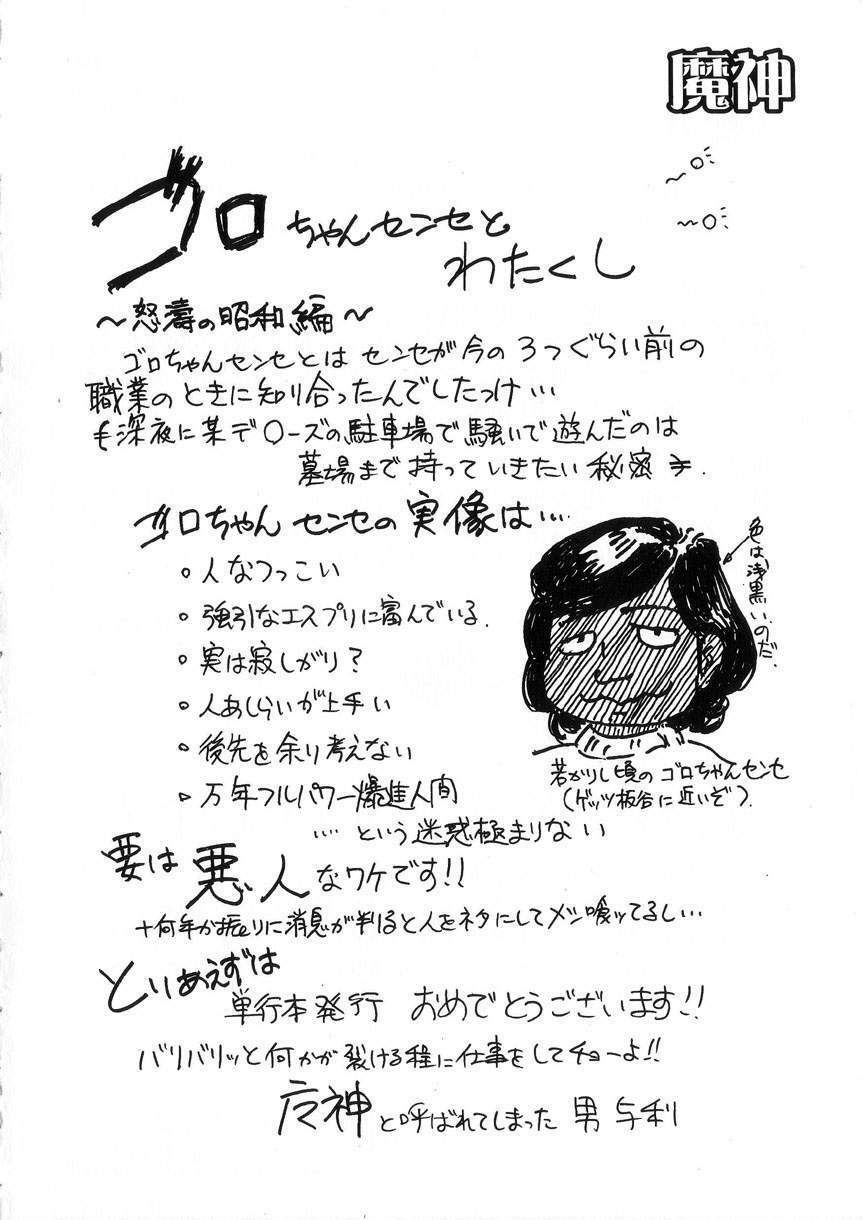 魔神
ゴロちゃんセンセと
わたくし
～怒濤の昭和編～
ゴロちゃんセンセとは センセが今の3つぐらい前の
職業のときに知り合ったんでしたっけ…
深夜に某デ〇ーズの駐車場で騒いで遊んだのは
墓場まで持っていきたい秘密
ゴロちゃんセンセの実像は…
○人なつっこい
○強引なエスプリに富んでいる.
○実は寂しがり?
○人あしらいが上手い
○後先を余り考えない
○万年フルパワー爆進人間
…という迷惑極まりない
色は浅黒いのだ.
若かりし頃のゴロちゃんセンセ
(ゲッツ板谷に近いぞ).
要は悪人なワケです!!
十何年か振りに消息が判ると人をネタにしてメシ喰ってるし…
とりあえずは
単行本発行 おめでとうございます!!
バリバリッと何かが裂ける程に仕事をしてチョーよ!!
神と呼ばれてしまった男 与利